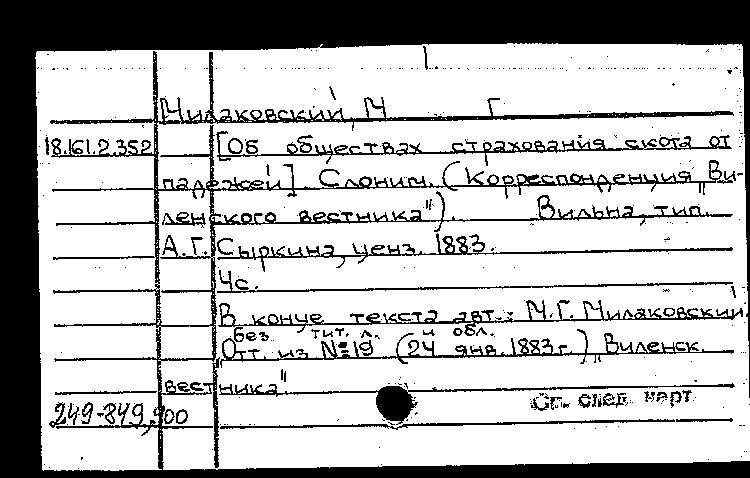 Милаковский, М Г
18.161.2.352 [Об обществах страхования скота от
падежей]. Слоним. (Корреспонденция „Ви-
ленского вестника"). Вильна, тип.
А.Г. Сыркина, ценз. 1883.
4с.
В конце текста авт.: М.Г. Милаковский.
без тит. л. и обл.
Отт. из №19 (24 янв. 1883г.) „Виленск.
вестника"
249-849,900
См. след. карт